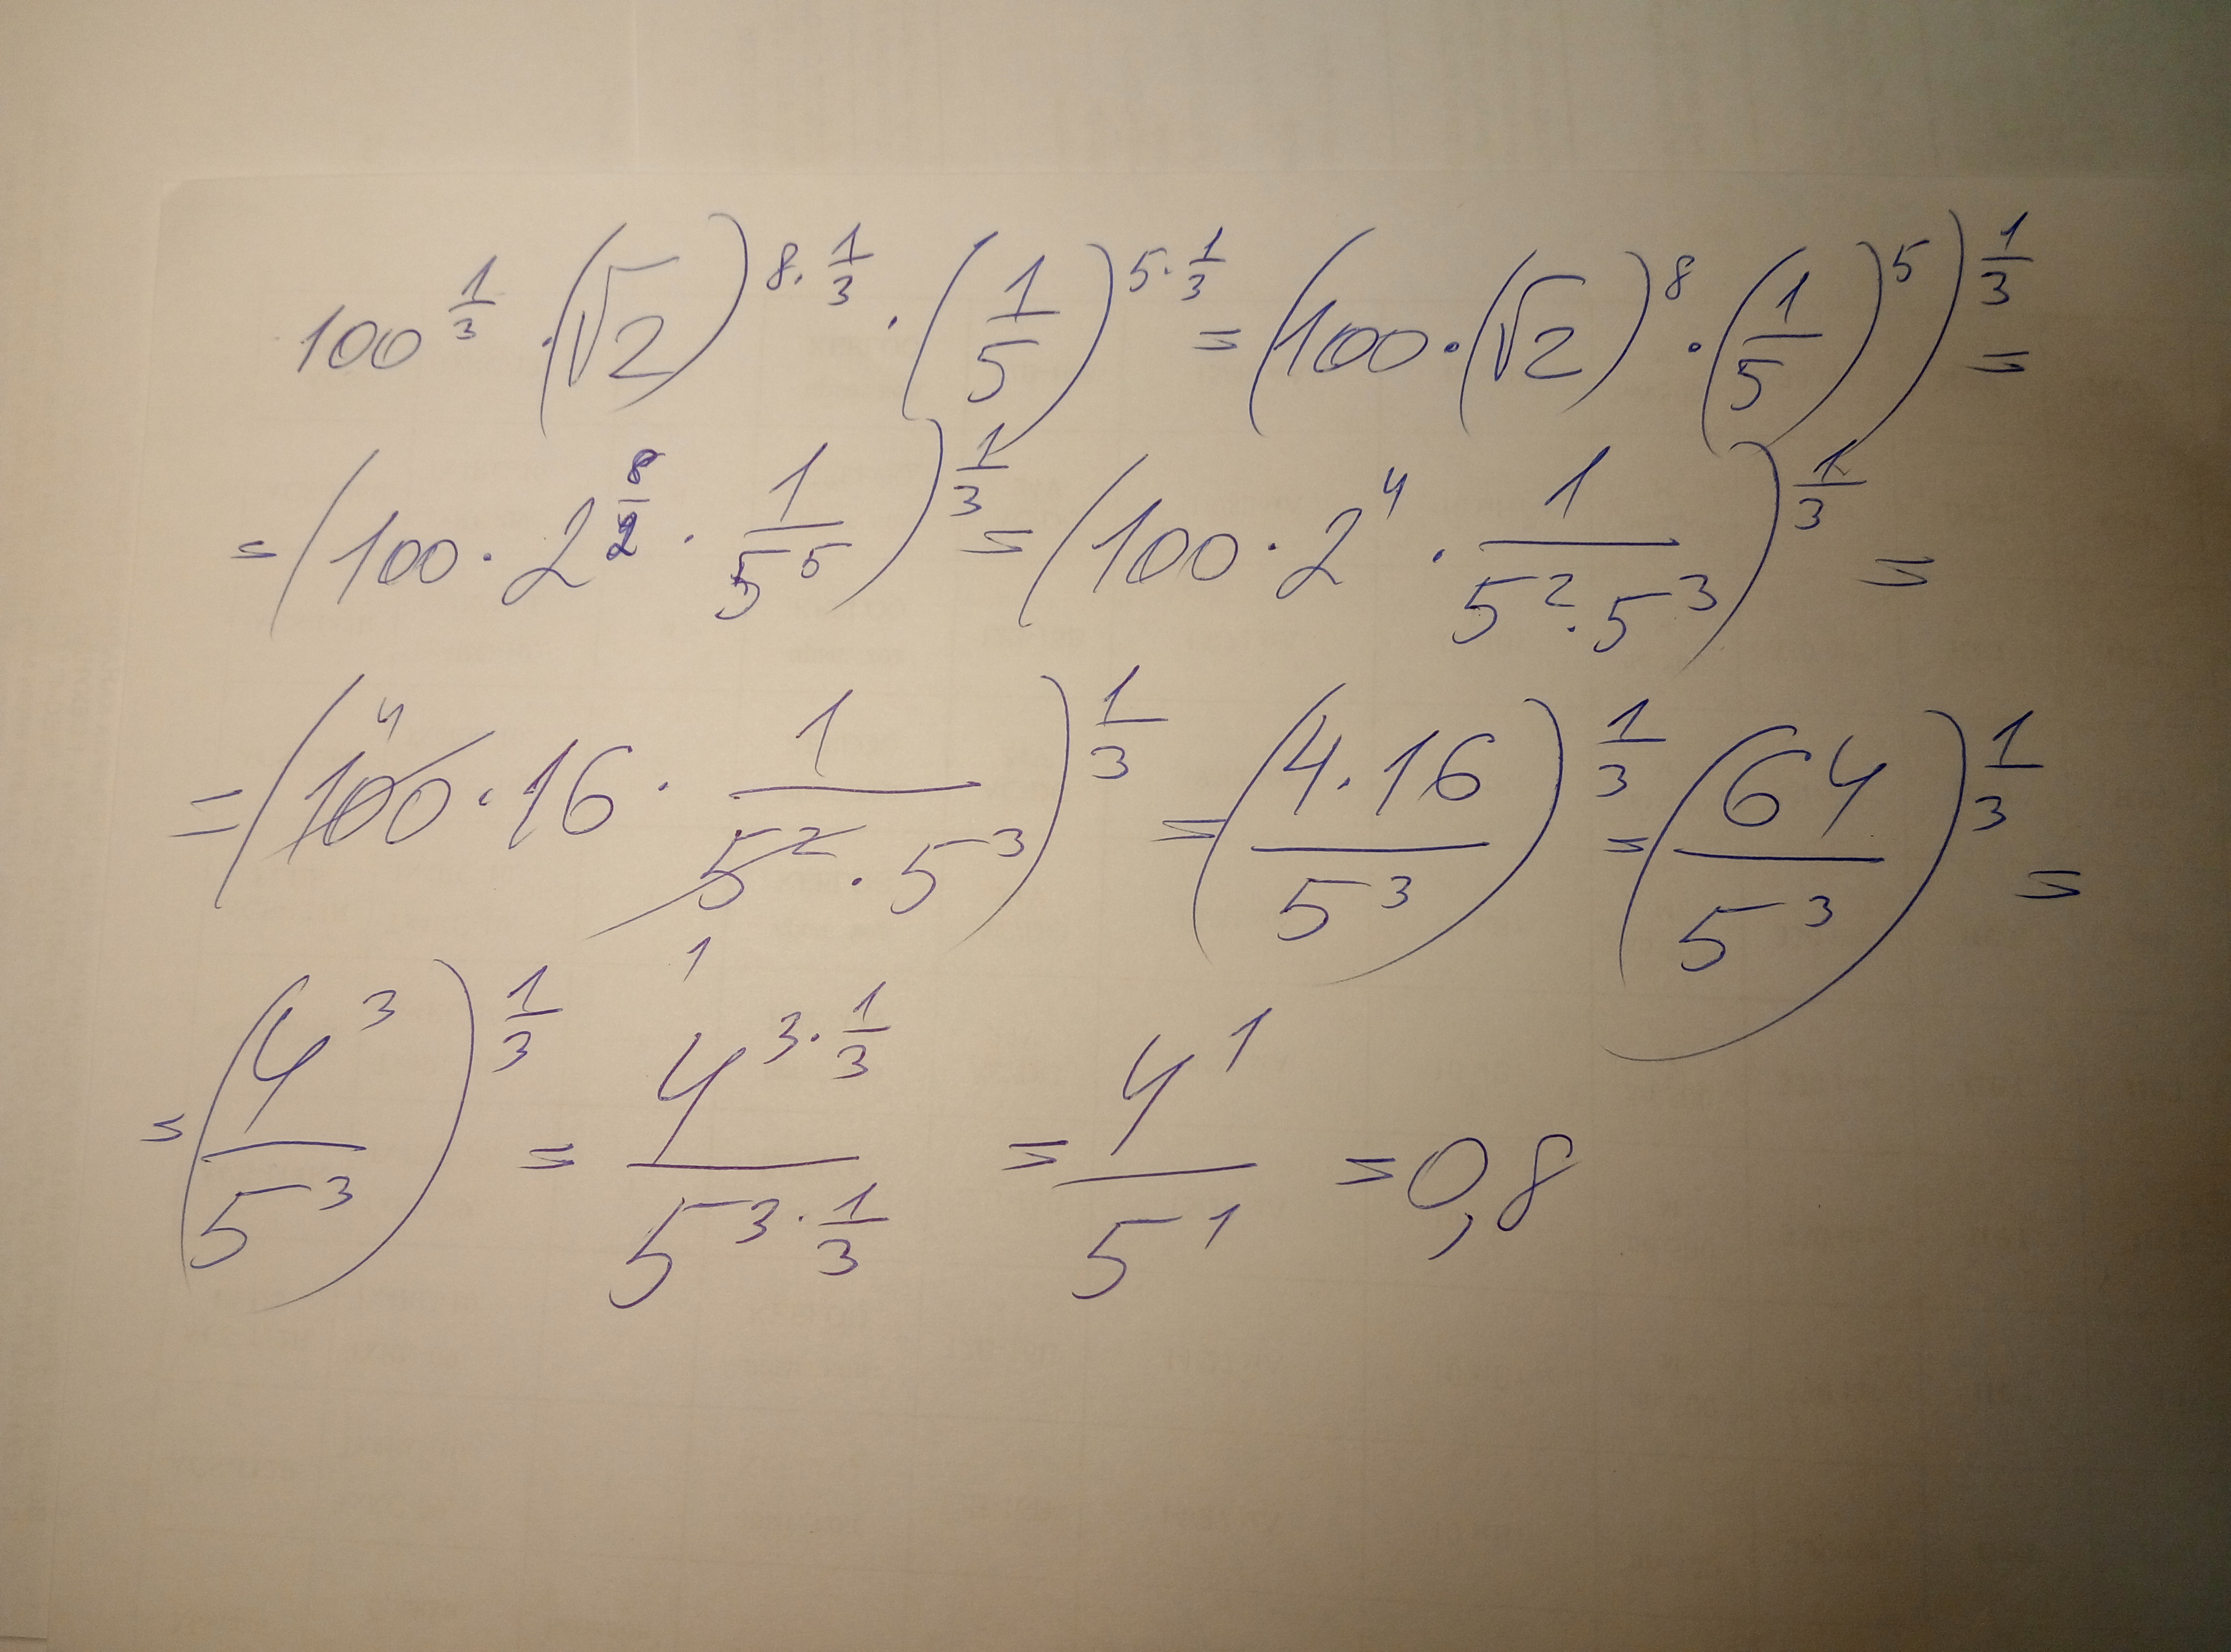 100^{\frac{1}{3}} · (√2)^{8·\frac{1}{3}} · (\frac{1}{5})^{5·\frac{1}{3}} = (100 · (√2)^8 · (\frac{1}{5})^5)^{\frac{1}{3}} =
= (100 · 2^{\frac{8}{2}} · \frac{1}{5^5})^{\frac{1}{3}} = (100 · 2^4 · \frac{1}{5^2 · 5^3})^{\frac{1}{3}} =
= (\cancel{100}^4 · 16 · \frac{1}{\cancel{5^2}_1 · 5^3})^{\frac{1}{3}} = (\frac{4·16}{5^3})^{\frac{1}{3}} = (\frac{64}{5^3})^{\frac{1}{3}} =
= (\frac{4^3}{5^3})^{\frac{1}{3}} = \frac{4^{3·\frac{1}{3}}}{5^{3·\frac{1}{3}}} = \frac{4^1}{5^1} = 0,8